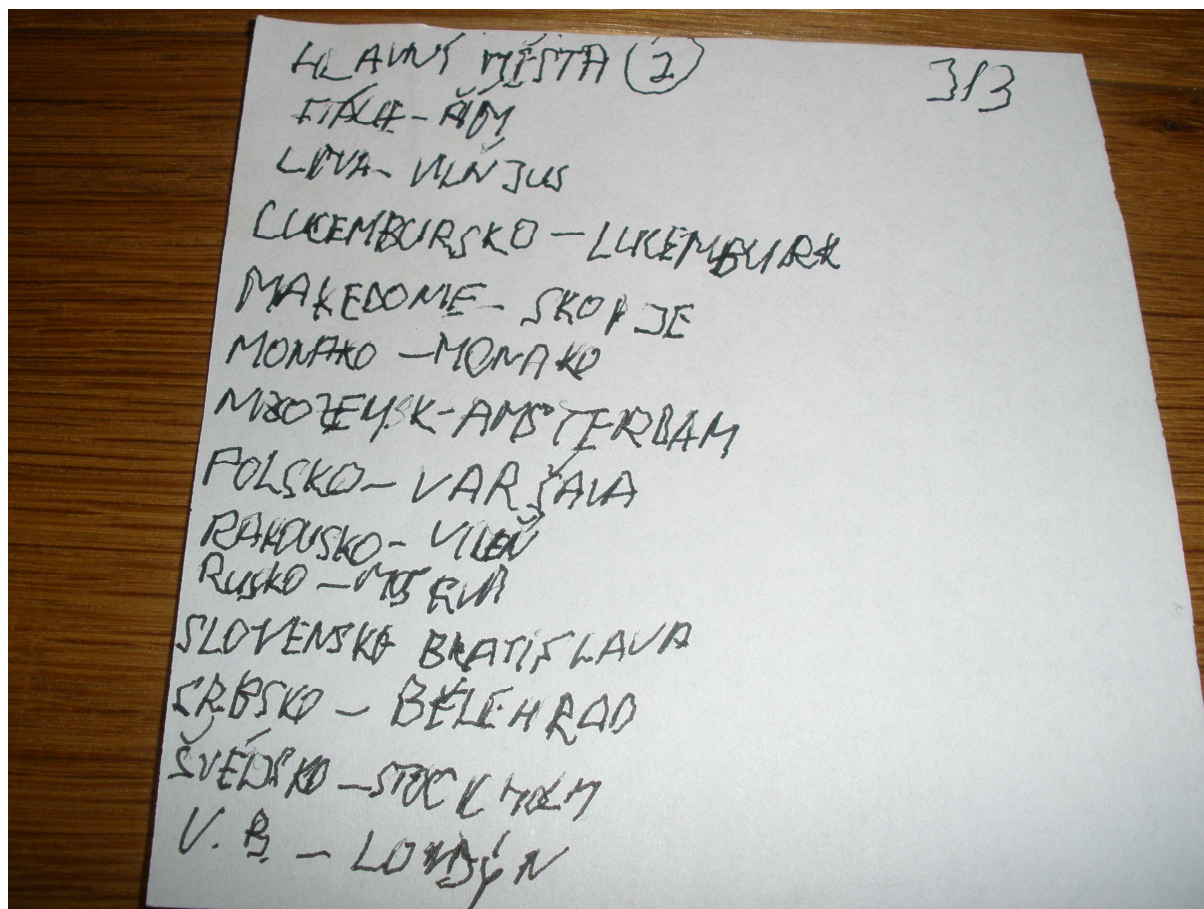 HLAVNÍ MĚSTA (2) 313
ITÁLIE - ŘÍM
LITVA - VILNJUS
LUCEMBURSKO - LUCEMBURK
MAKEDONIE - SKOPJE
MONAKO - MONAKO
NIZOZEMSK - AMSTERDAM
POLSKO - VARŠAVA
RAKOUSKO - VÍDEŇ
RUSKO - MOSKVA
SLOVENSKO BRATISLAVA
SRBSKO - BĚLEHRAD
ŠVÉDSKO - STOCKHOLM
V. B. - LONDÝN